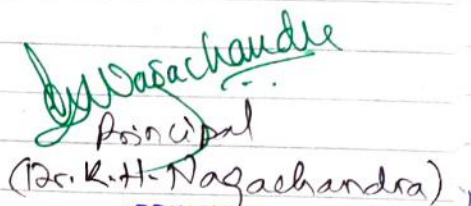 Nagachandra
Principal
(Dr. K.H. Nagachandra)